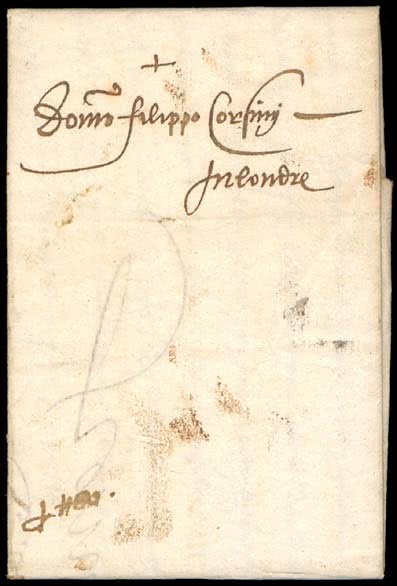 +
Domō filippo Corsinj
Inlondre